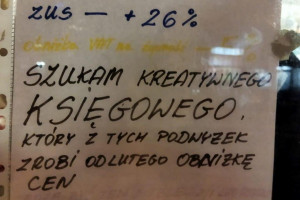 ZUS — + 26%
VAT na
SZUKAM KREATYWNEGO
KSIĘGOWEGO,
KTÓRY Z TYCH PODWYŻEK
ZROBI OD LUTEGO OBNIŻKĘ
CEN